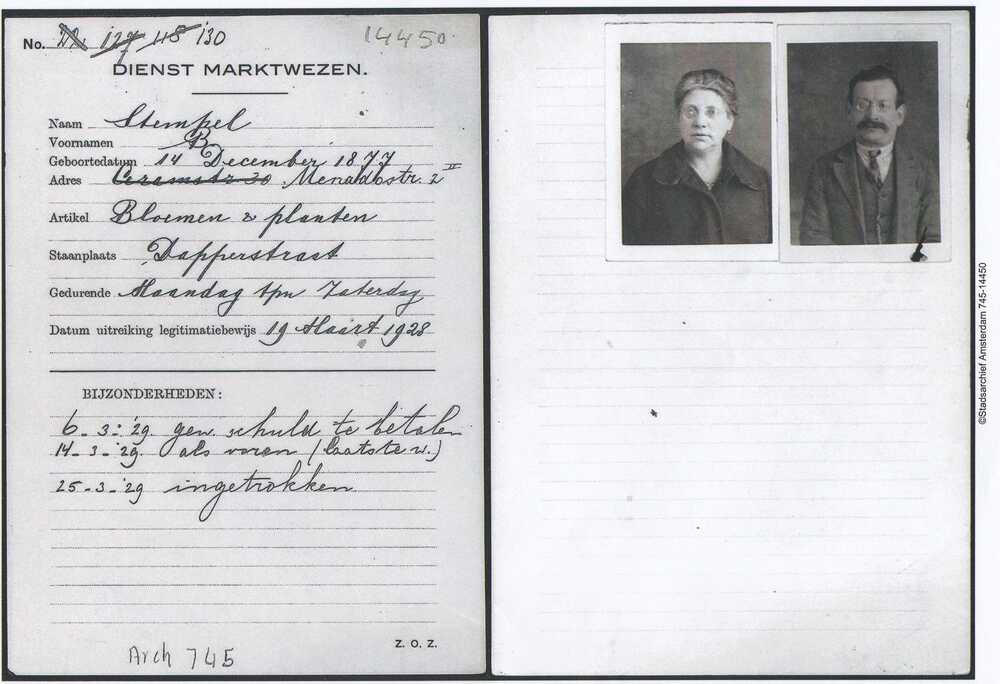 No. 22. 127 48 130
14450
DIENST MARKTWEZEN.
Naam Stempel
Voornamen B
Geboortedatum 14 December 1877
Adres Ceramstr 30 Menadostr. 2 II
Artikel Bloemen & planten
Staanplaats Dapperstraat
Gedurende Maandag t/m Zaterdag
Datum uitreiking legitimatiebewijs 19 Maart 1928
BIJZONDERHEDEN:
6-3-'29 gew. schuld te betalen
14-3-'29. als voren (laatste w.)
25-3-'29 ingetrokken
Z. O. Z.
Arch 745
©Stadsarchief Amsterdam 745-14450